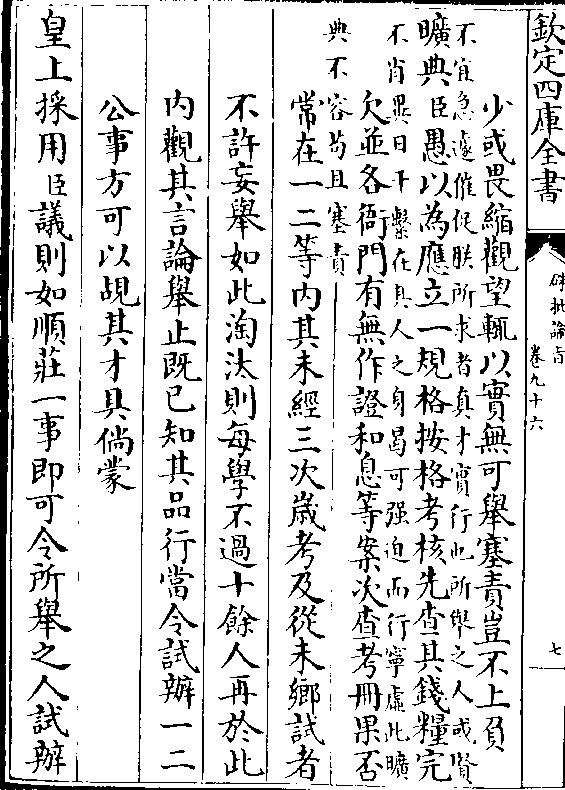 欽定四庫全書
硃批諭旨
卷九十六
七
少或畏縮觀望輒以實無可舉塞責豈不上負
不宜急遽催促朕所求者真才實行也所舉之人或賢
曠典臣愚以為應立一規格按格考核先查其錢糧完
不肖異日干繫在其人之身曷可强迫而行寧虛此曠
欠並各衙門有無作證和息等案次查考冊果否
典不容茍且塞責
常在一二等内其未經三次歲考及從未鄉試者
不許妄舉如此淘汰則每學不過十餘人再於此
内觀其言論舉止既已知其品行當令試辦一二
公事方可以覘其才具倘蒙
皇上採用臣議則如順莊一事即可令所舉之人試辦